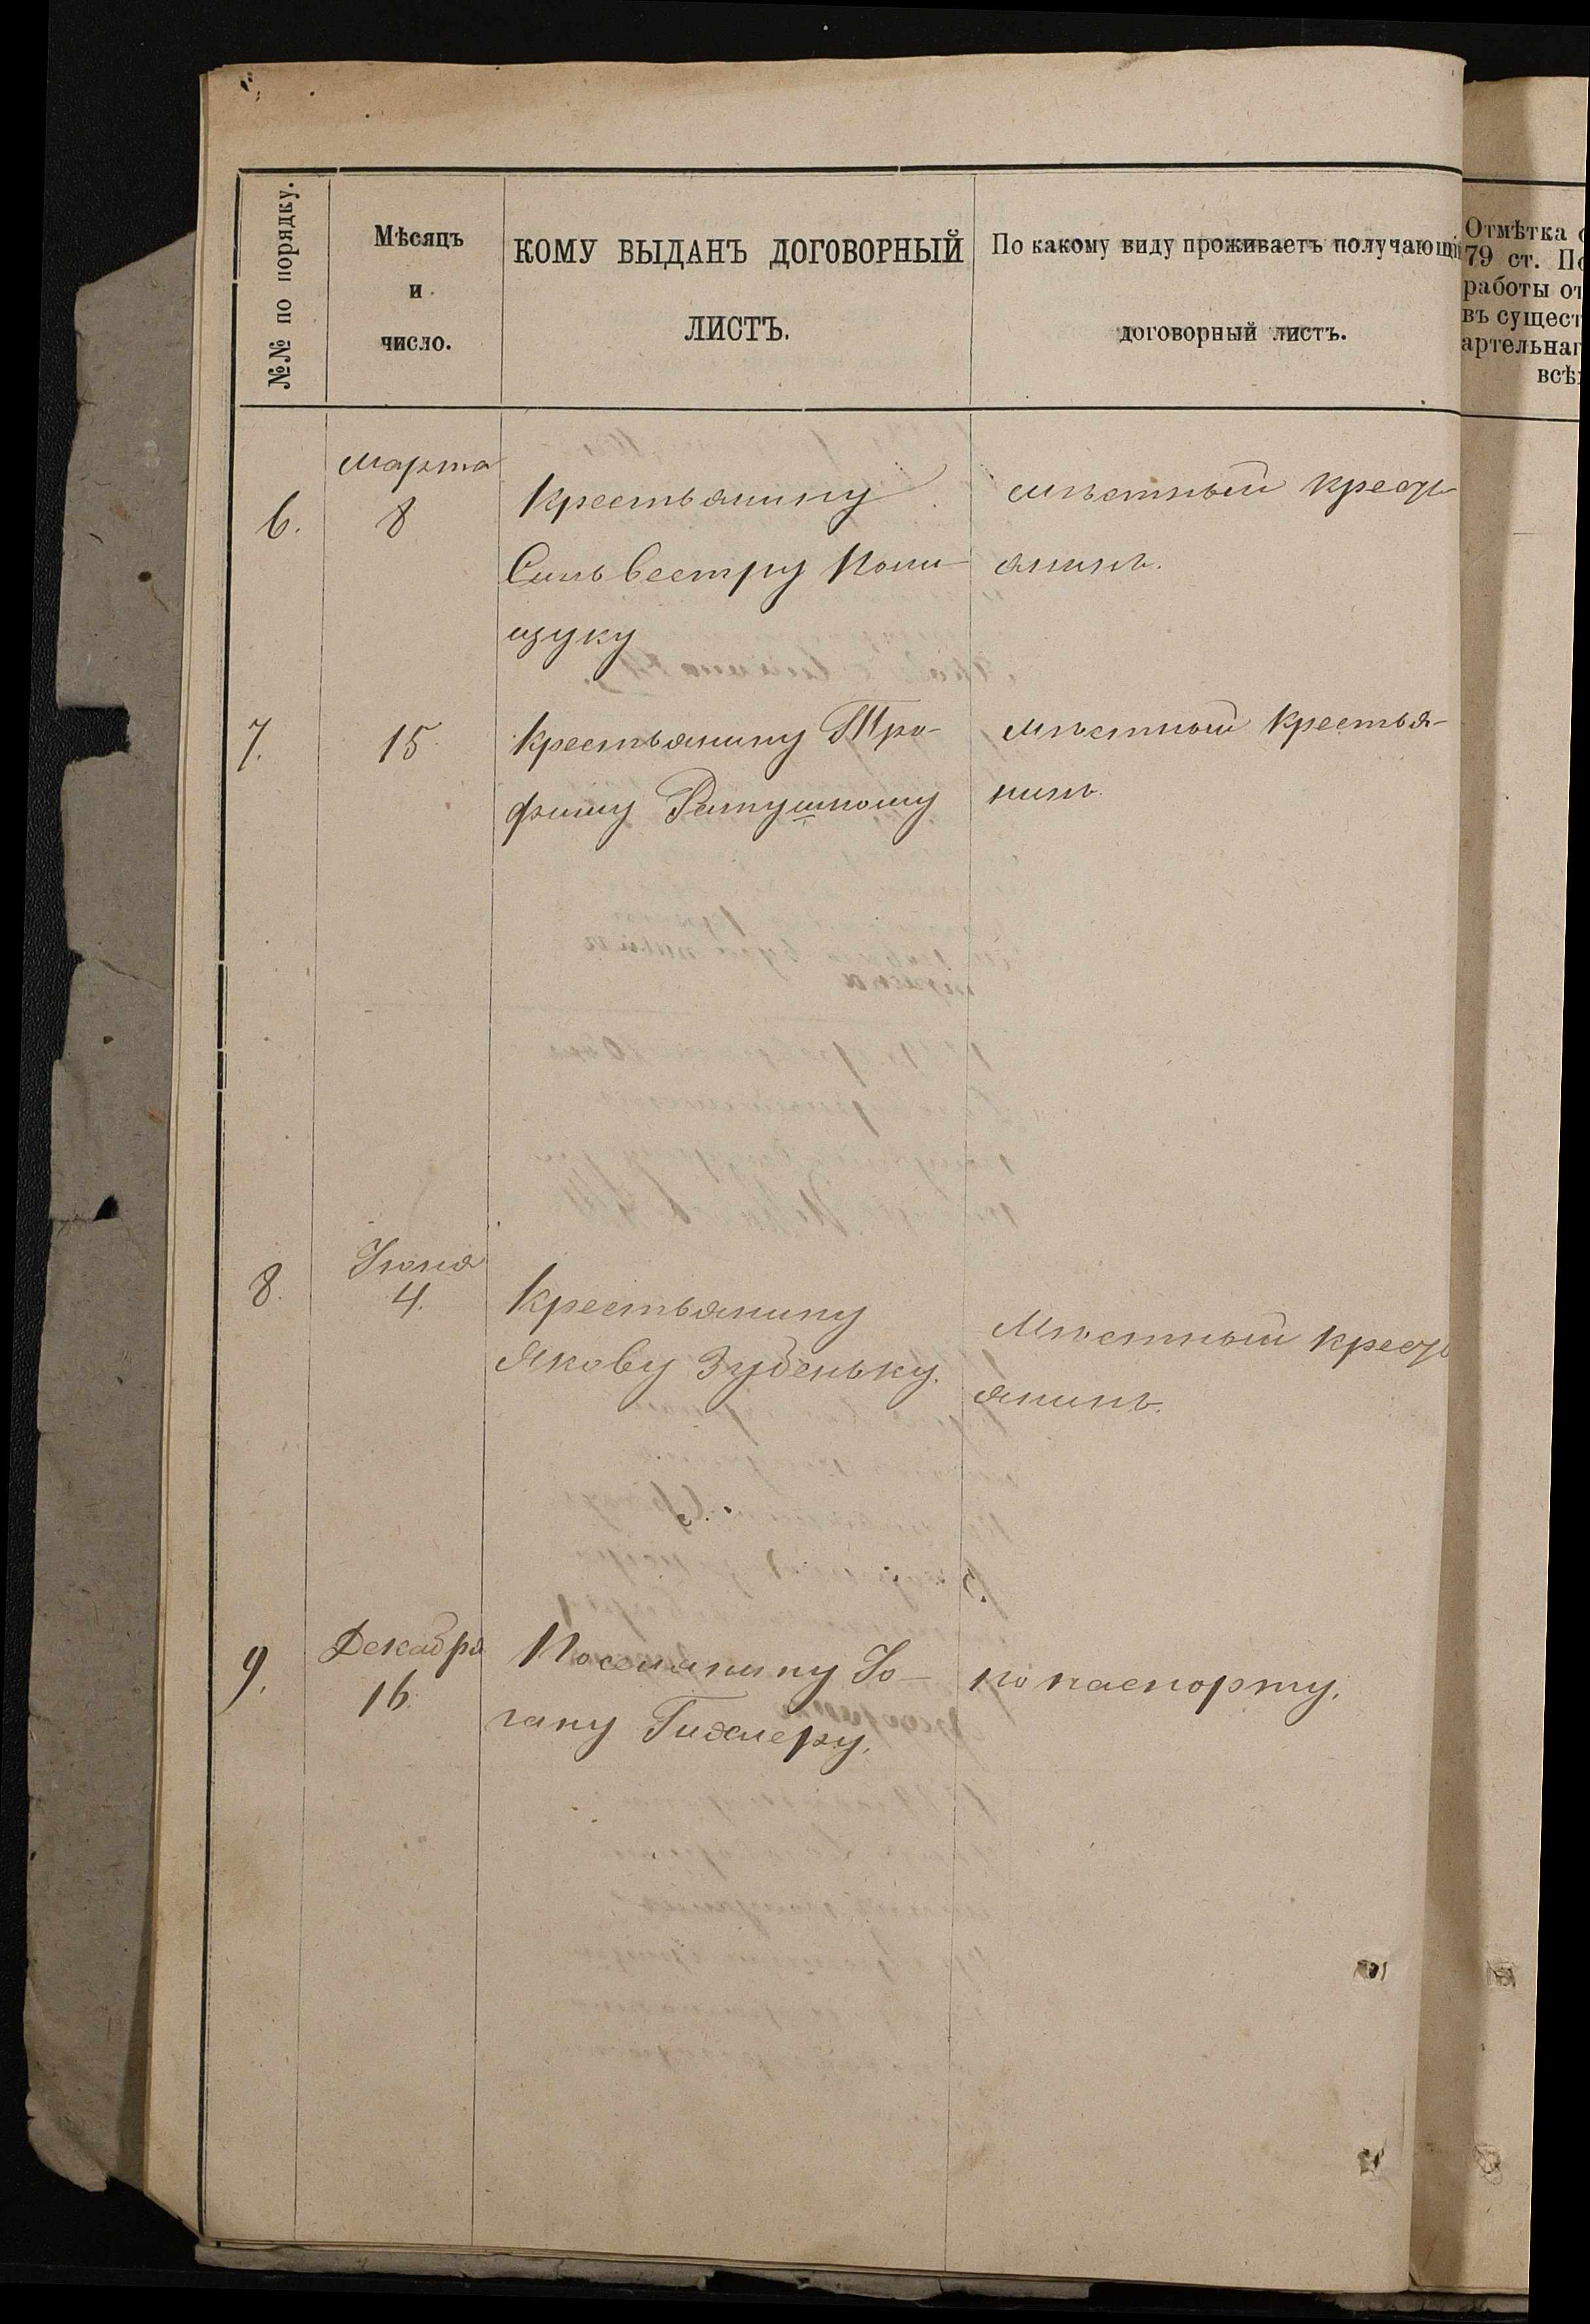 №№ по порядку.
Мѣсяцъ
и
число.
КОМУ ВЫДАНЪ ДОГОВОРНЫЙ
ЛИСТЪ.
По какому виду проживаетъ получающі
договорный листъ.
Отмѣтка
79 ст. По
работы от
въ сущест
артельнаг
всѣ
6.
Марта
8
Крестьянину
Сильвестру Поли-
щуку
мѣстный кресть-
янинъ.
7.
15
Крестьянину Тро-
фиму Ратушному
мѣстный крестья-
нинъ.
8.
Іюня
4.
Крестьянину
Якову Зубеньку.
Мѣстный кресть
янинъ.
9.
Декабря
16.
Поселянину Іо-
гану
по паспорту.